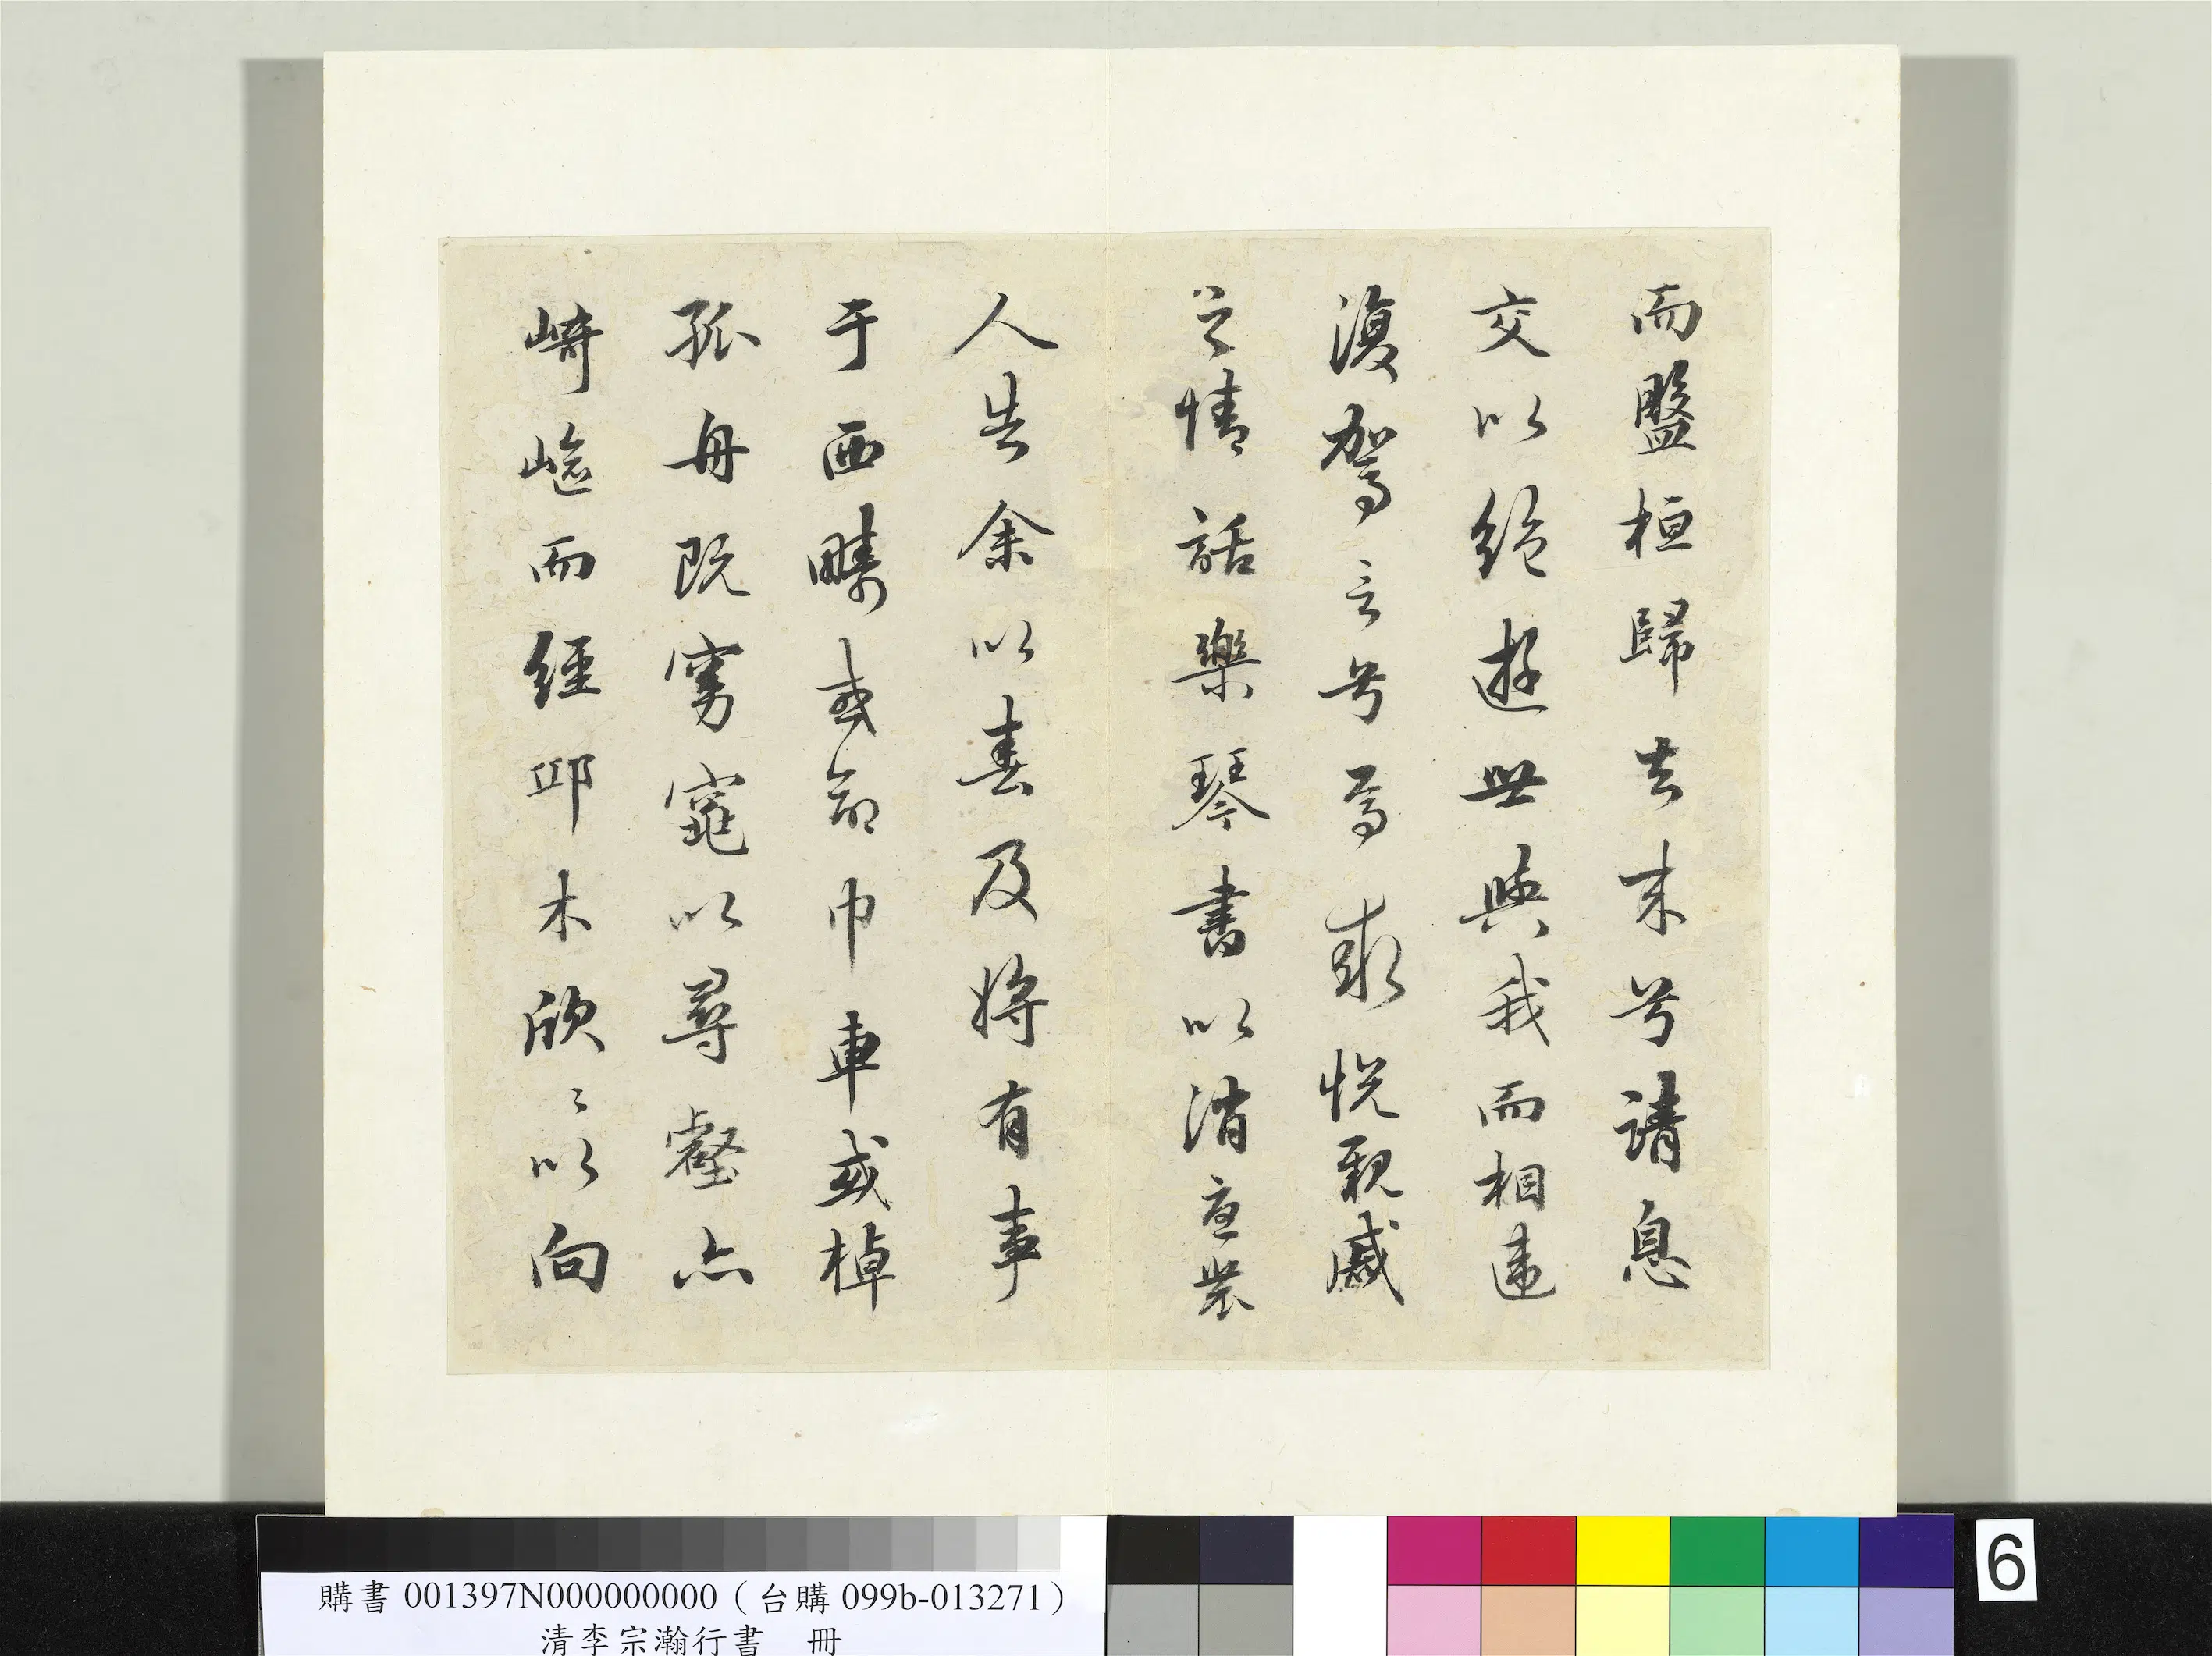 而盤桓歸去来兮請息
交以絕遊世與我而相違
復駕言兮焉求悅親戚
之情話樂琴書以消憂農
人告余以春及將有事
于西疇或命巾車或棹
孤舟既窈窕以尋壑亦
崎嶇而經邱木欣〻以向
購書 001397N000000000（台購 099b-013271）
清李宗瀚行書　冊
6